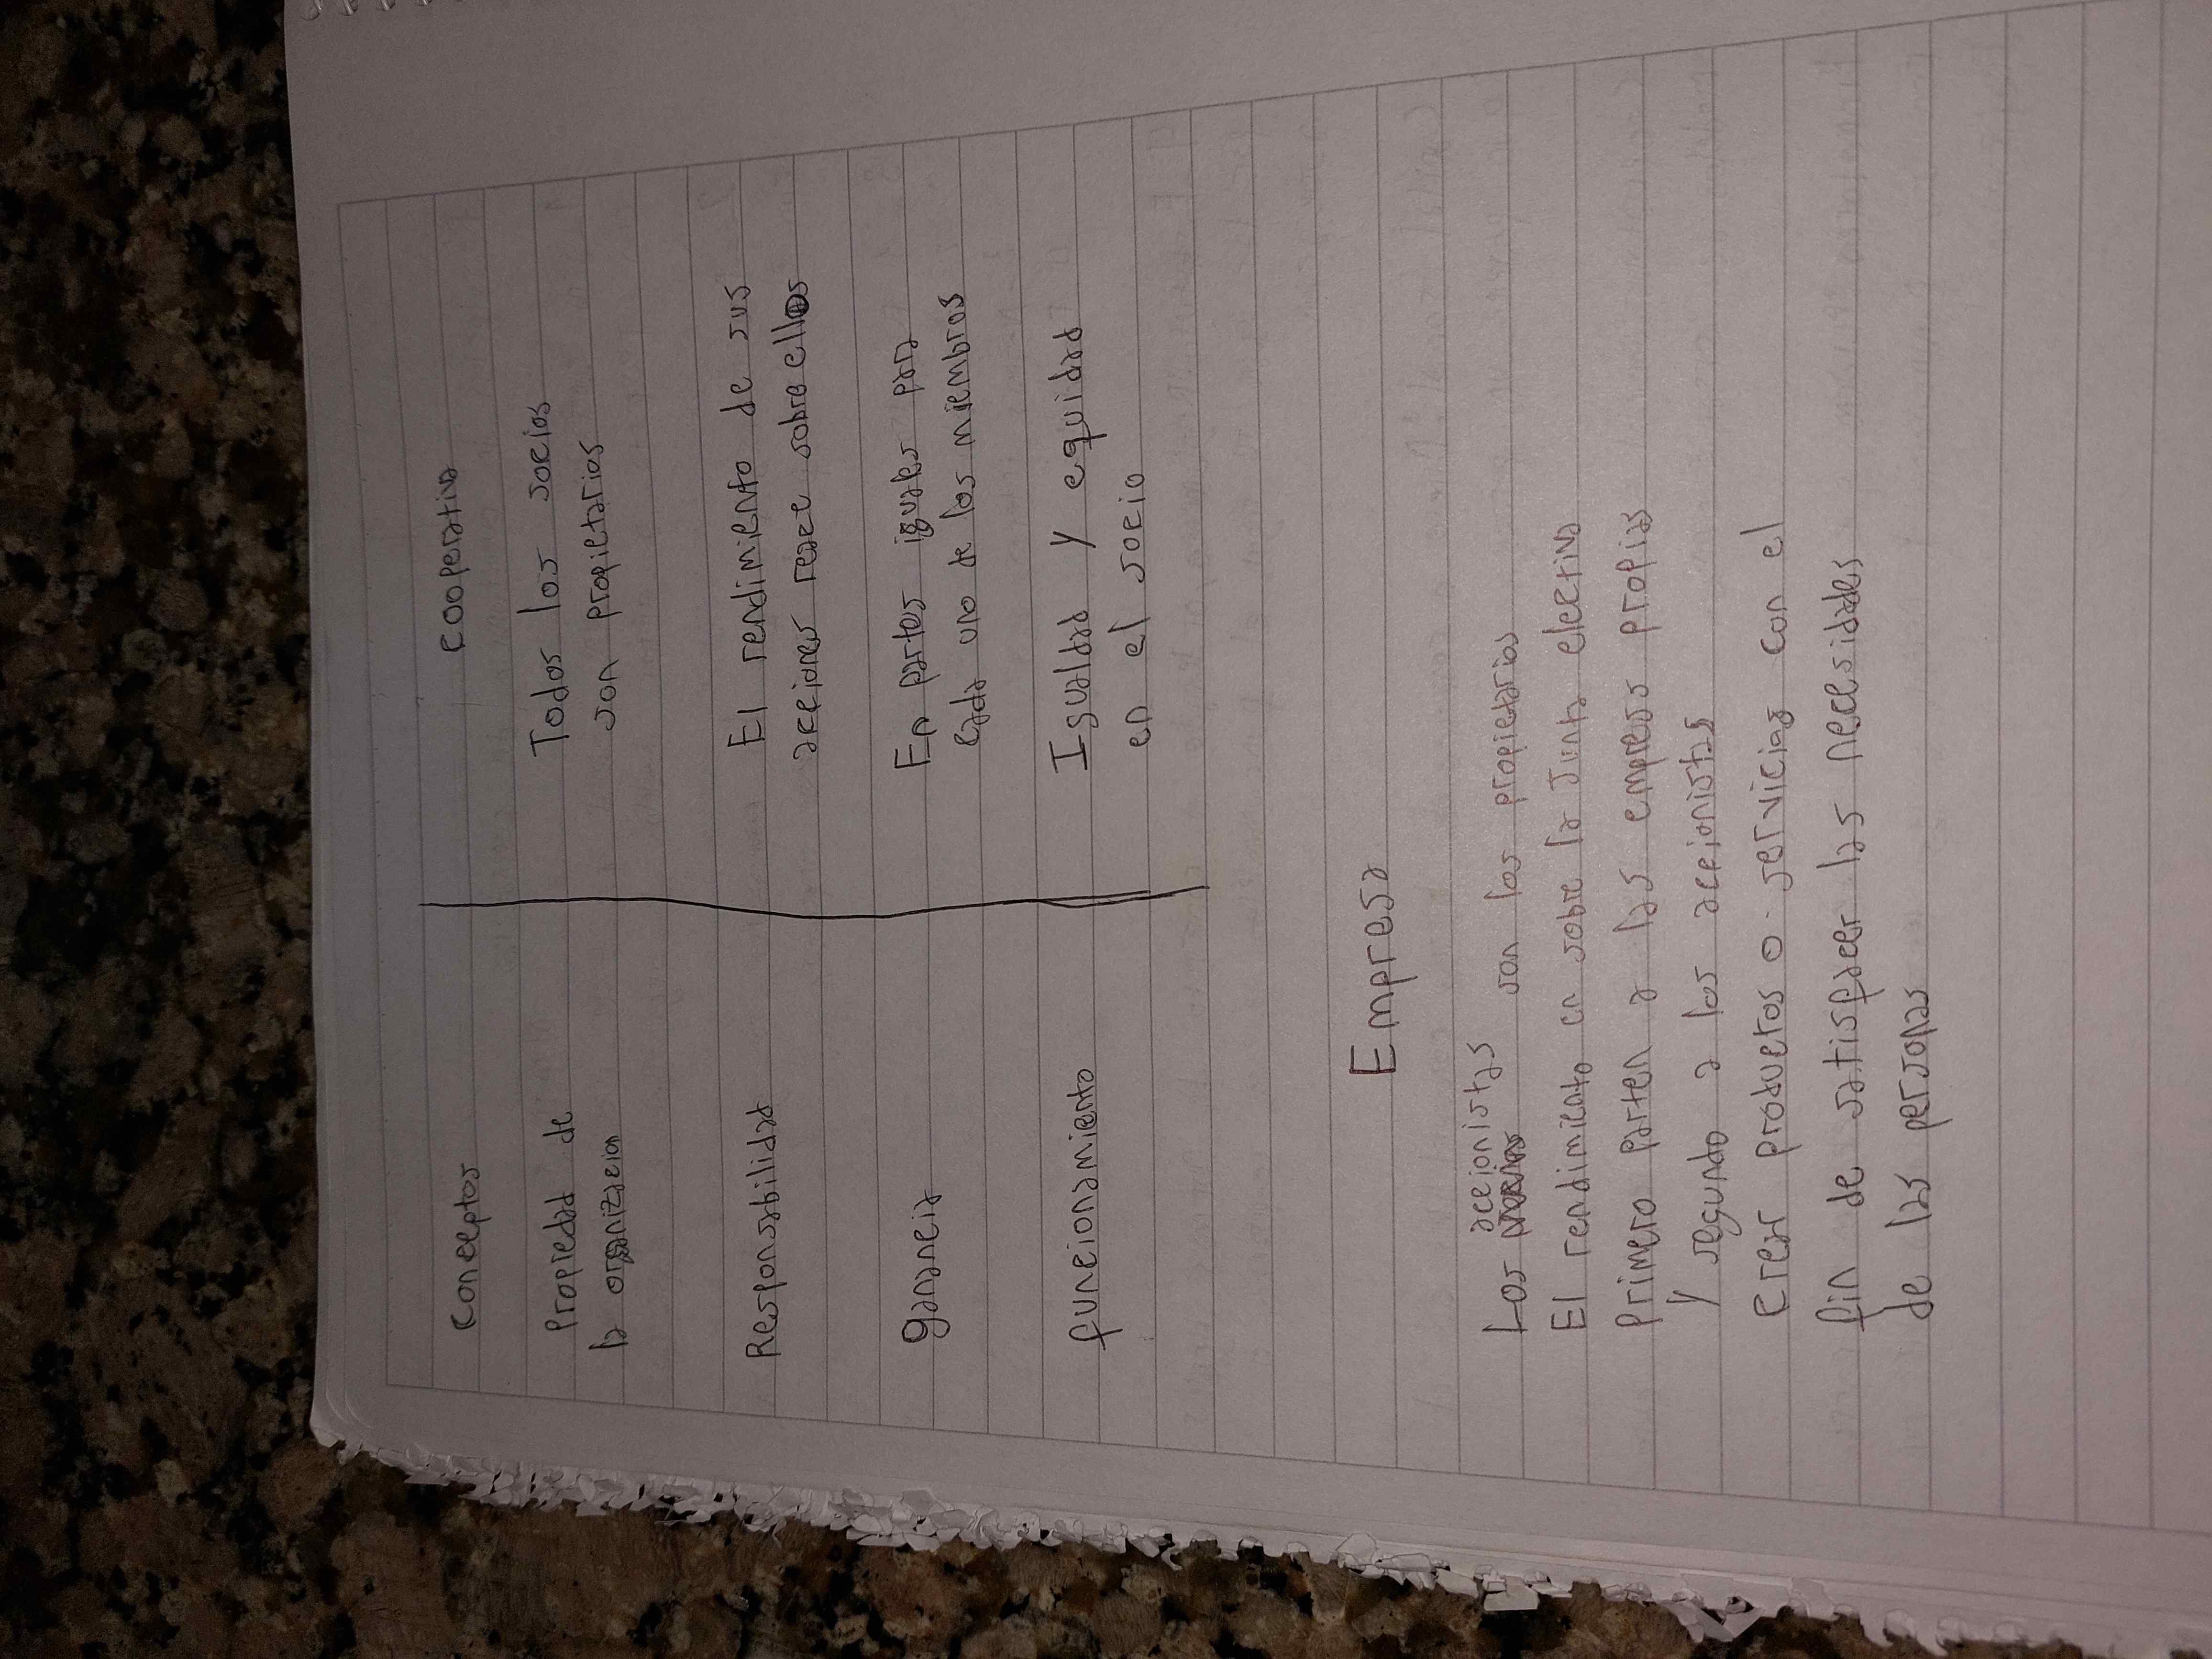 Conceptos cooperativa
Propiedad de Todos los socios
la organizacion son propietarios
Responsabilidad El rendimiento de sus
acciones recae sobre ellos
ganancia En partes iguales para
cada uno de los miembros
funcionamiento Igualdad y equidad
en el socio
Empresa
accionistas
Los son los propietarios
El rendimiento en sobre la Junta electiva
Primero parten a las empresas propias
y segundo a los accionistas
Crear productos o servicios con el
fin de satisfacer las necesidades
de las personas